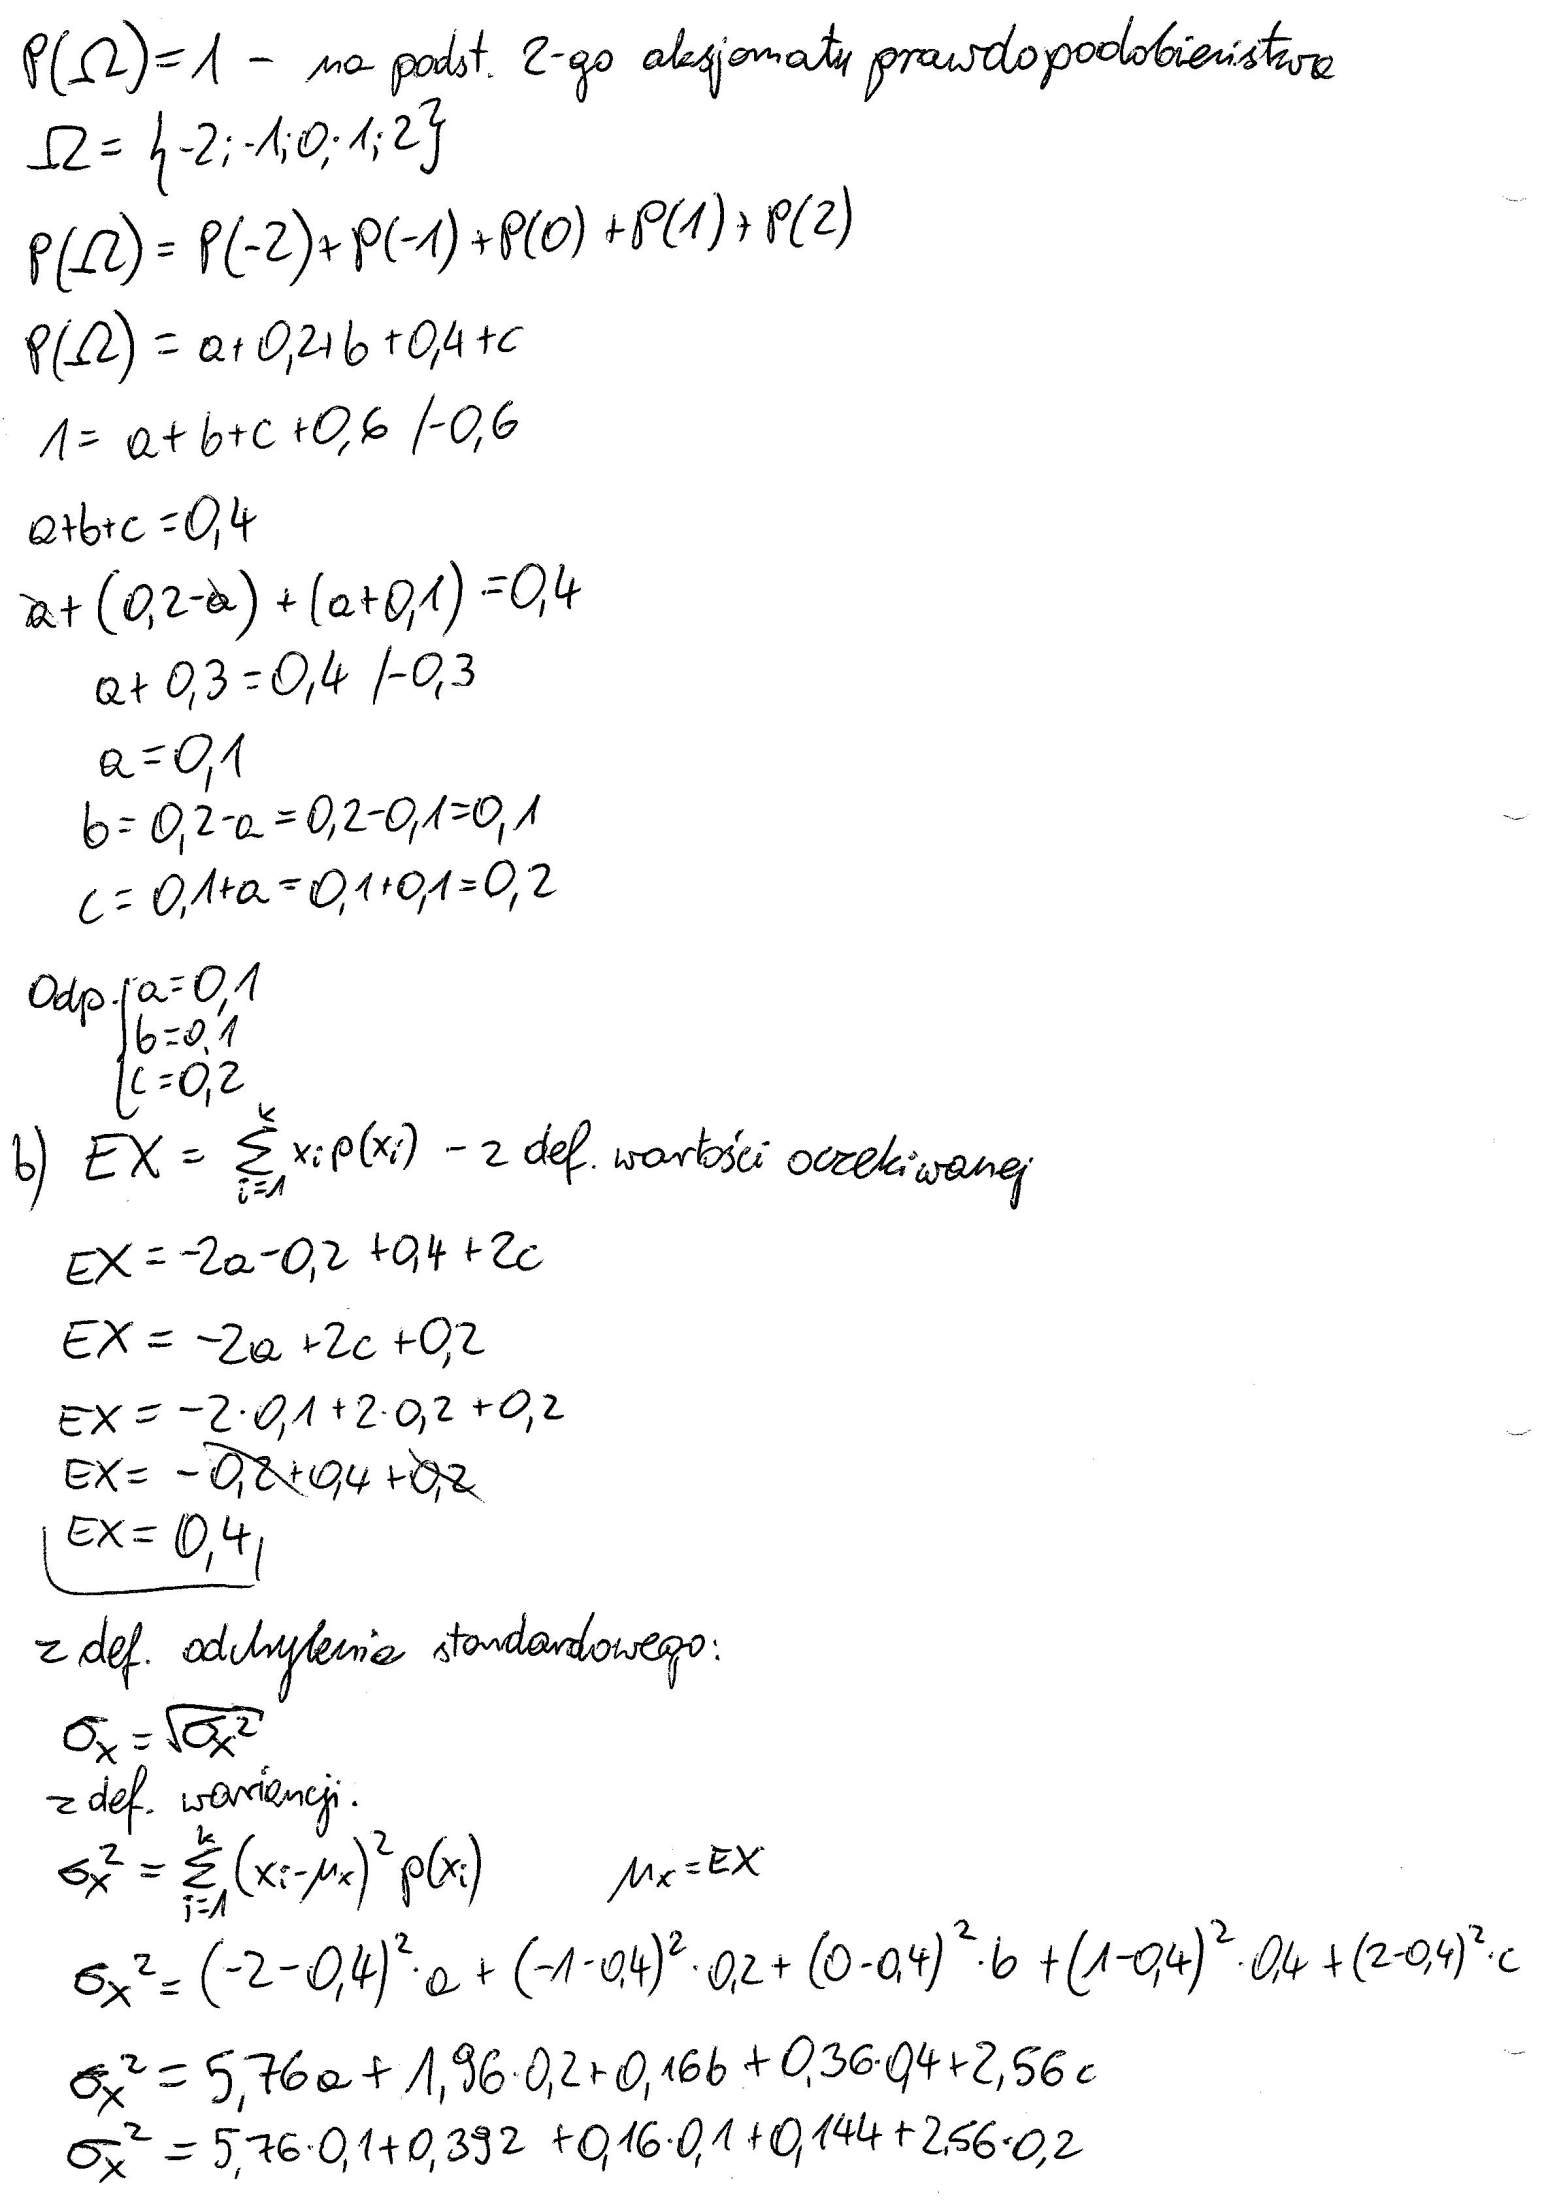 P(Ω)=1 - na podst. 2-go aksjomatu prawdopodobieństwa
Ω = {-2; -1; 0; 1; 2}
P(Ω) = P(-2)+P(-1)+P(0)+P(1)+P(2)
P(Ω) = a+0,2+b+0,4+c
1 = a+b+c+0,6 /-0,6
a+b+c=0,4
a+(0,2-a)+(a+0,1)=0,4
a+0,3=0,4 /-0,3
a=0,1
b=0,2-a=0,2-0,1=0,1
c=0,1+a=0,1+0,1=0,2
Odp. {a=0,1
b=0,1
c=0,2
b) EX = \sum_{i=1}^{k} x_i p(x_i) - z def. wartości oczekiwanej
EX = -2a-0,2+0,4+2c
EX = -2a+2c+0,2
EX = -2·0,1+2·0,2+0,2
EX = -0,2+0,4+0,2
EX = 0,4
z def. odchylenia standardowego:
σ_x = √σ_x²
z def. wariancji.
σ_x² = \sum_{i=1}^{k} (x_i-μ_x)² p(x_i) μ_x=EX
σ_x² = (-2-0,4)²·a+(-1-0,4)²·0,2+(0-0,4)²·b+(1-0,4)²·0,4+(2-0,4)²·c
σ_x² = 5,76a+1,96·0,2+0,16b+0,36·0,4+2,56c
σ_x² = 5,76·0,1+0,392+0,16·0,1+0,144+2,56·0,2